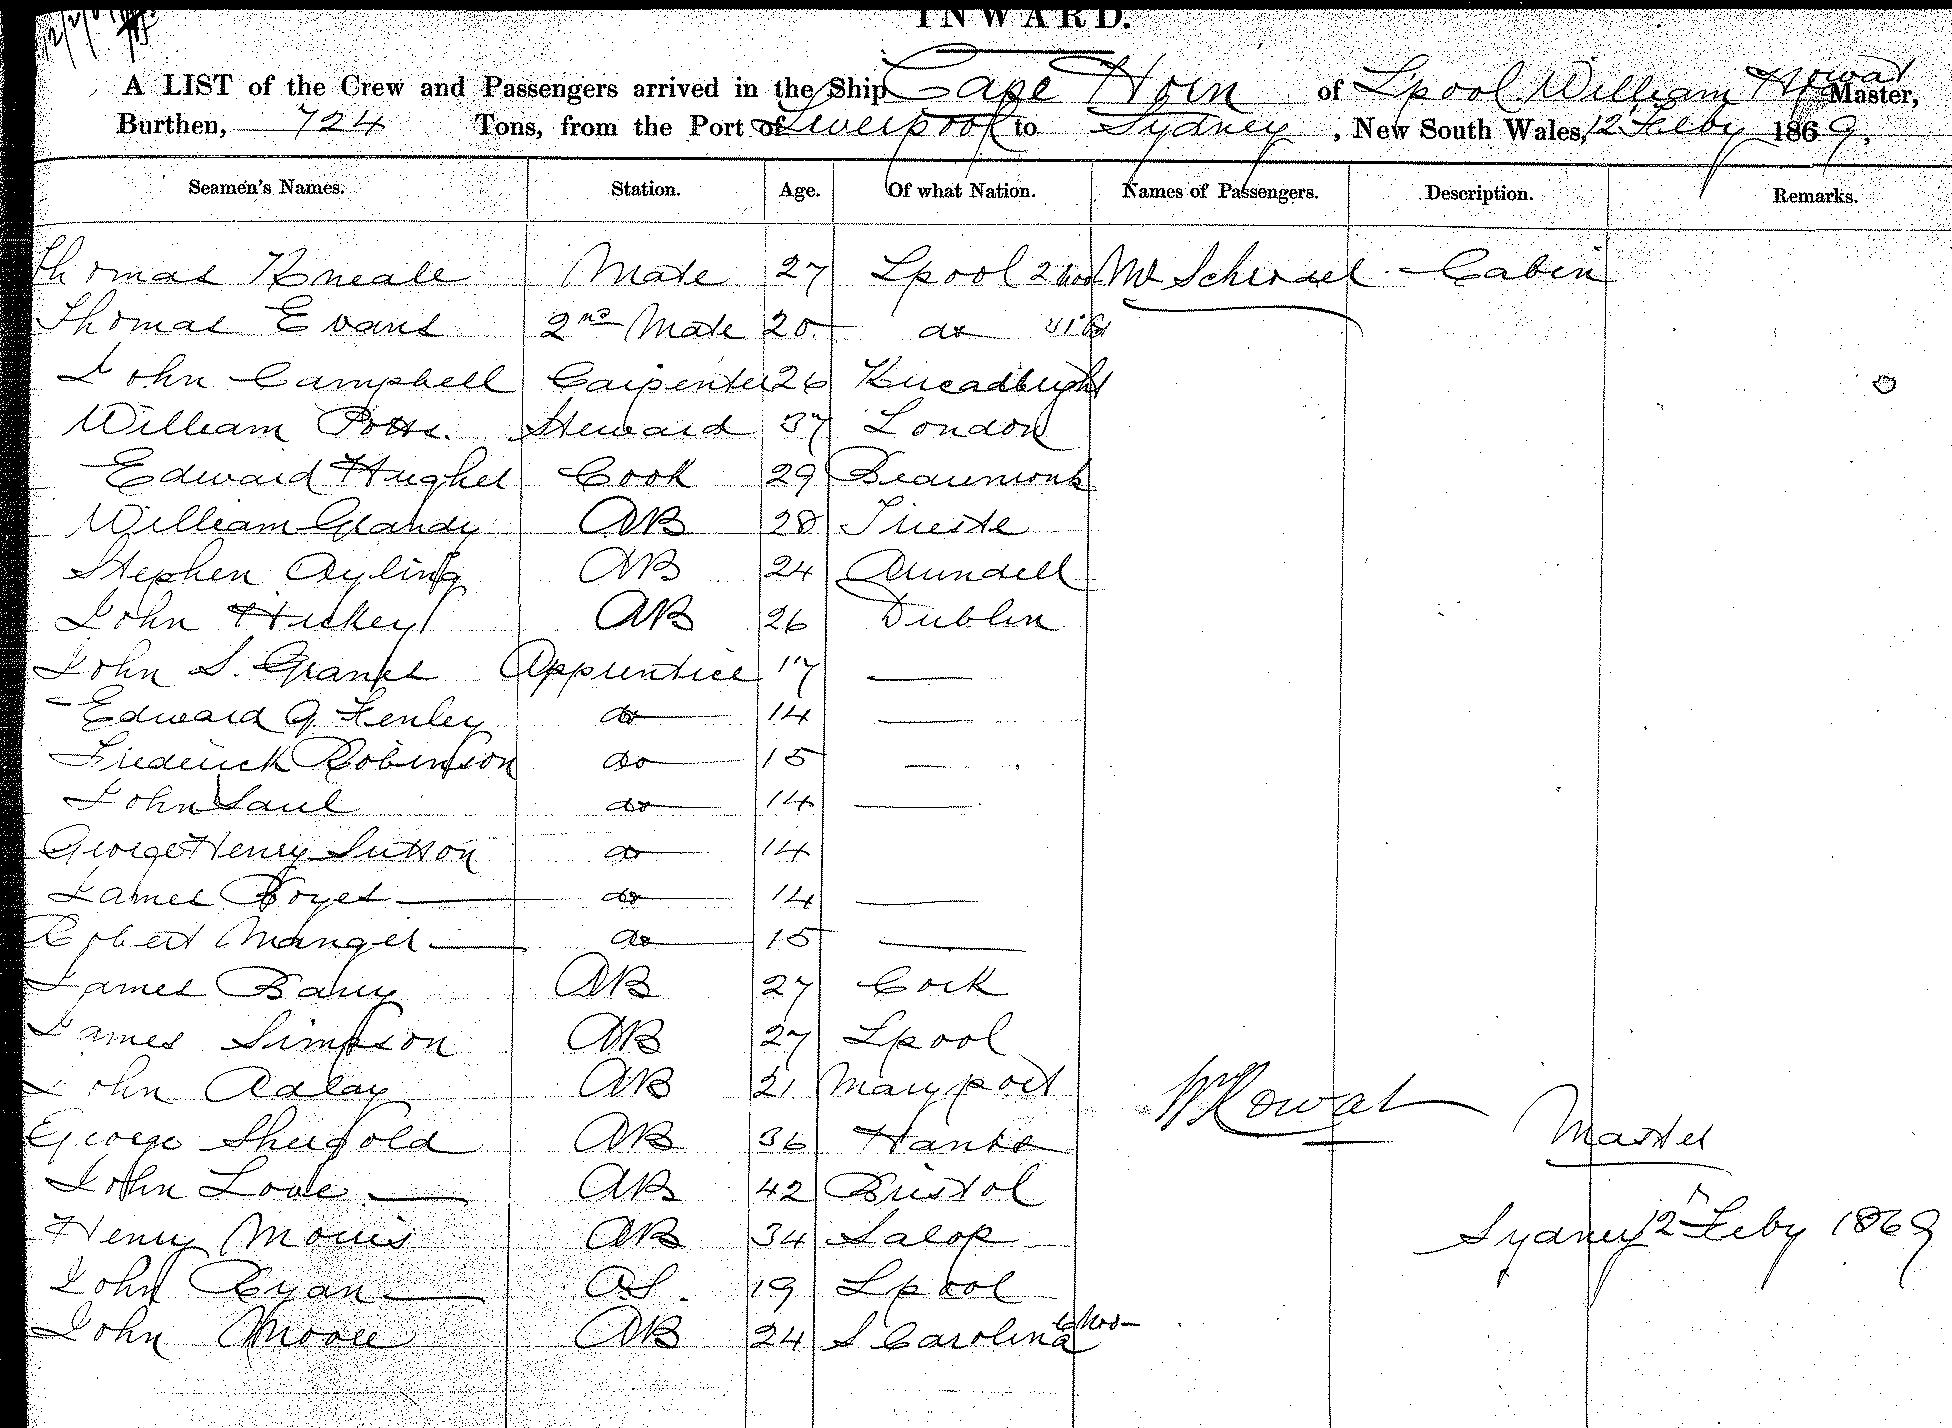 INWARD.
A LIST of the Crew and Passengers arrived in the Ship Cape Horn of Lpool William Rowat Master,
Burthen, 724 Tons, from the Port of Liverpool to Sydney, New South Wales, 12 Feby 1869,
Seamen's Names. Station. Age. Of what Nation. Names of Passengers. Description. Remarks.
Thomas Kneale Mate 27 Lpool Mr Cabin
Thomas Evans 2nd Mate 20 do
John Campbell Carpenter 26
William Potts. Steward 37 London
Edward Hughes Cook 29 Beaumont
William Grandy AB 28 Trieste
Stephen Ayling AB 24 Arundell
John Hickey AB 26 Dublin
John S. Apprentice 17 —
Edward G. Fenley do 14 —
Frederick Robinson do 15 —
John Saul do 14 —
George Henry Sutton do 14
James Boyes — do 14 —
Robert Manger — do 15 —
James Barry AB 27 Cork
James Simpson AB 27 Lpool
John Adlay AB 21 Maryport
George Shergold AB 36 Hants
Wm Rowat Master
John Love — AB 42 Bristol
Henry Morris AB 34 Salop
Sydney 12 Feby 1869
John Ryan — OS. 19 Lpool
John Moore AB 24 S Carolina